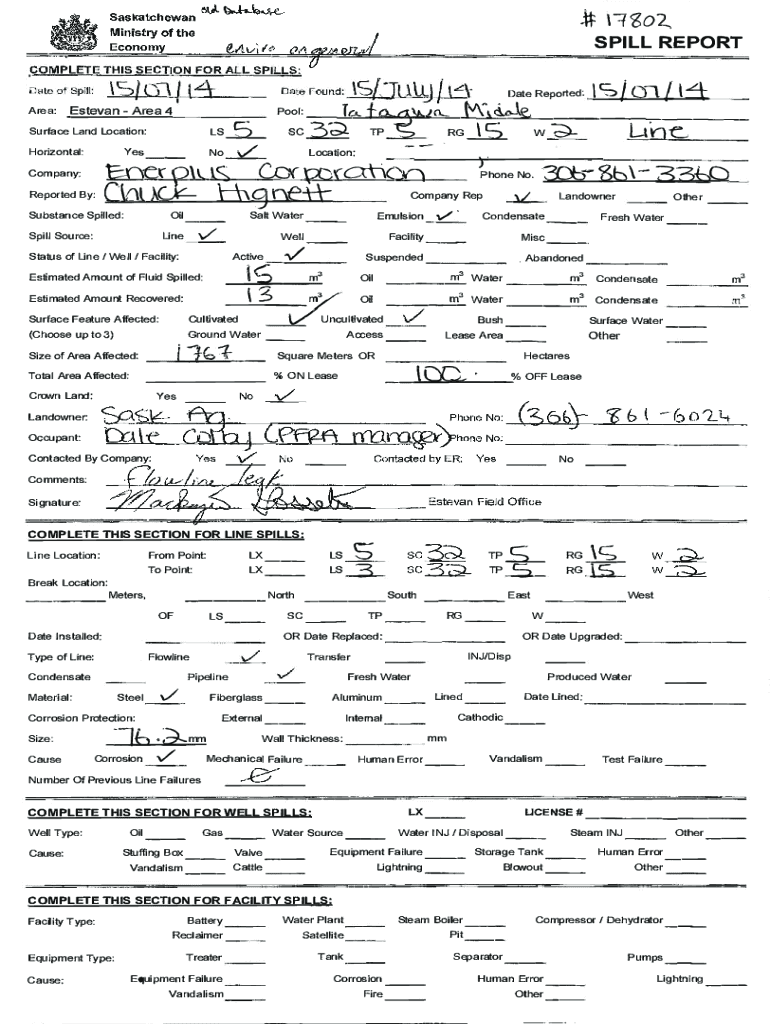 Saskatchewan old Database
Ministry of the
Economy enviro ongemoral
# 17802
SPILL REPORT
COMPLETE THIS SECTION FOR ALL SPILLS:
Date of Spill: 15/07/14 Date Found: 15/July/14 Date Reported: 15/07/14
Area: Estevan - Area 4 Pool: Tatagwa Midale
Surface Land Location: LS 5 SC 32 TP 5 RG 15 W 2 Line
Horizontal: Yes No ✓ Location:
Company: Enerplus Corporation Phone No. 306-861-3360
Reported By: Chuck Hignett Company Rep ✓ Landowner Other
Substance Spilled: Oil Salt Water Emulsion ✓ Condensate Fresh Water
Spill Source: Line ✓ Well Facility Misc
Status of Line / Well / Facility: Active ✓ Suspended Abandoned
Estimated Amount of Fluid Spilled: 15 m³ Oil m³ Water m³ Condensate m³
Estimated Amount Recovered: 13 m³ Oil m³ Water m³ Condensate m³
Surface Feature Affected: Cultivated ✓ Uncultivated ✓ Bush Surface Water
(Choose up to 3) Ground Water Access Lease Area Other
Size of Area Affected: 1767 Square Meters OR Hectares
Total Area Affected: % ON Lease 100. % OFF Lease
Crown Land; Yes No ✓
Landowner: Sask. Ag Phone No: (306)- 861-6024
Occupant: Dale (PFRA manager) Phone No:
Contacted By Company: Yes ✓ No Contacted by ER: Yes No
Comments: Flowline leak
Signature: Estevan Field Office
COMPLETE THIS SECTION FOR LINE SPILLS:
Line Location: From Point: LX LS 5 SC 32 TP 5 RG 15 W 2
To Point: LX LS 3 SC 32 TP 5 RG 15 W 2
Break Location:
Meters, North South East West
OF LS SC TP RG W
Date Installed: OR Date Replaced: OR Date Upgraded:
Type of Line: Flowline ✓ Transfer INJ/Disp
Condensate Pipeline ✓ Fresh Water Produced Water
Material: Steel ✓ Fiberglass Aluminum Lined Date Lined;
Corrosion Protection: External Internal Cathodic
Size: 76.2 mm Wall Thickness: mm
Cause Corrosion ✓ Mechanical Failure Human Error Vandalism Test Failure
Number Of Previous Line Failures
COMPLETE THIS SECTION FOR WELL SPILLS: LX LICENSE #
Well Type: Oil Gas Water Source Water INJ / Disposal Steam INJ Other
Cause: Stuffing Box Valve Equipment Failure Storage Tank Human Error
Vandalism Cattle Lightning Blowout Other
COMPLETE THIS SECTION FOR FACILITY SPILLS:
Facility Type: Battery Water Plant Steam Boiler Compressor / Dehydrator
Reclaimer Satellite Pit
Equipment Type: Treater Tank Separator Pumps
Cause: Equipment Failure Corrosion Human Error Lightning
Vandalism Fire Other